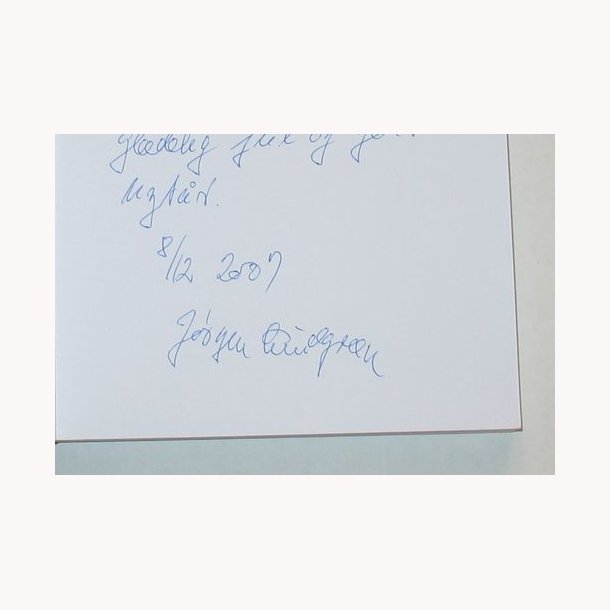 Glædelig jul og godt
Nytår.
8/12 2007
Jörgen Lindgreen